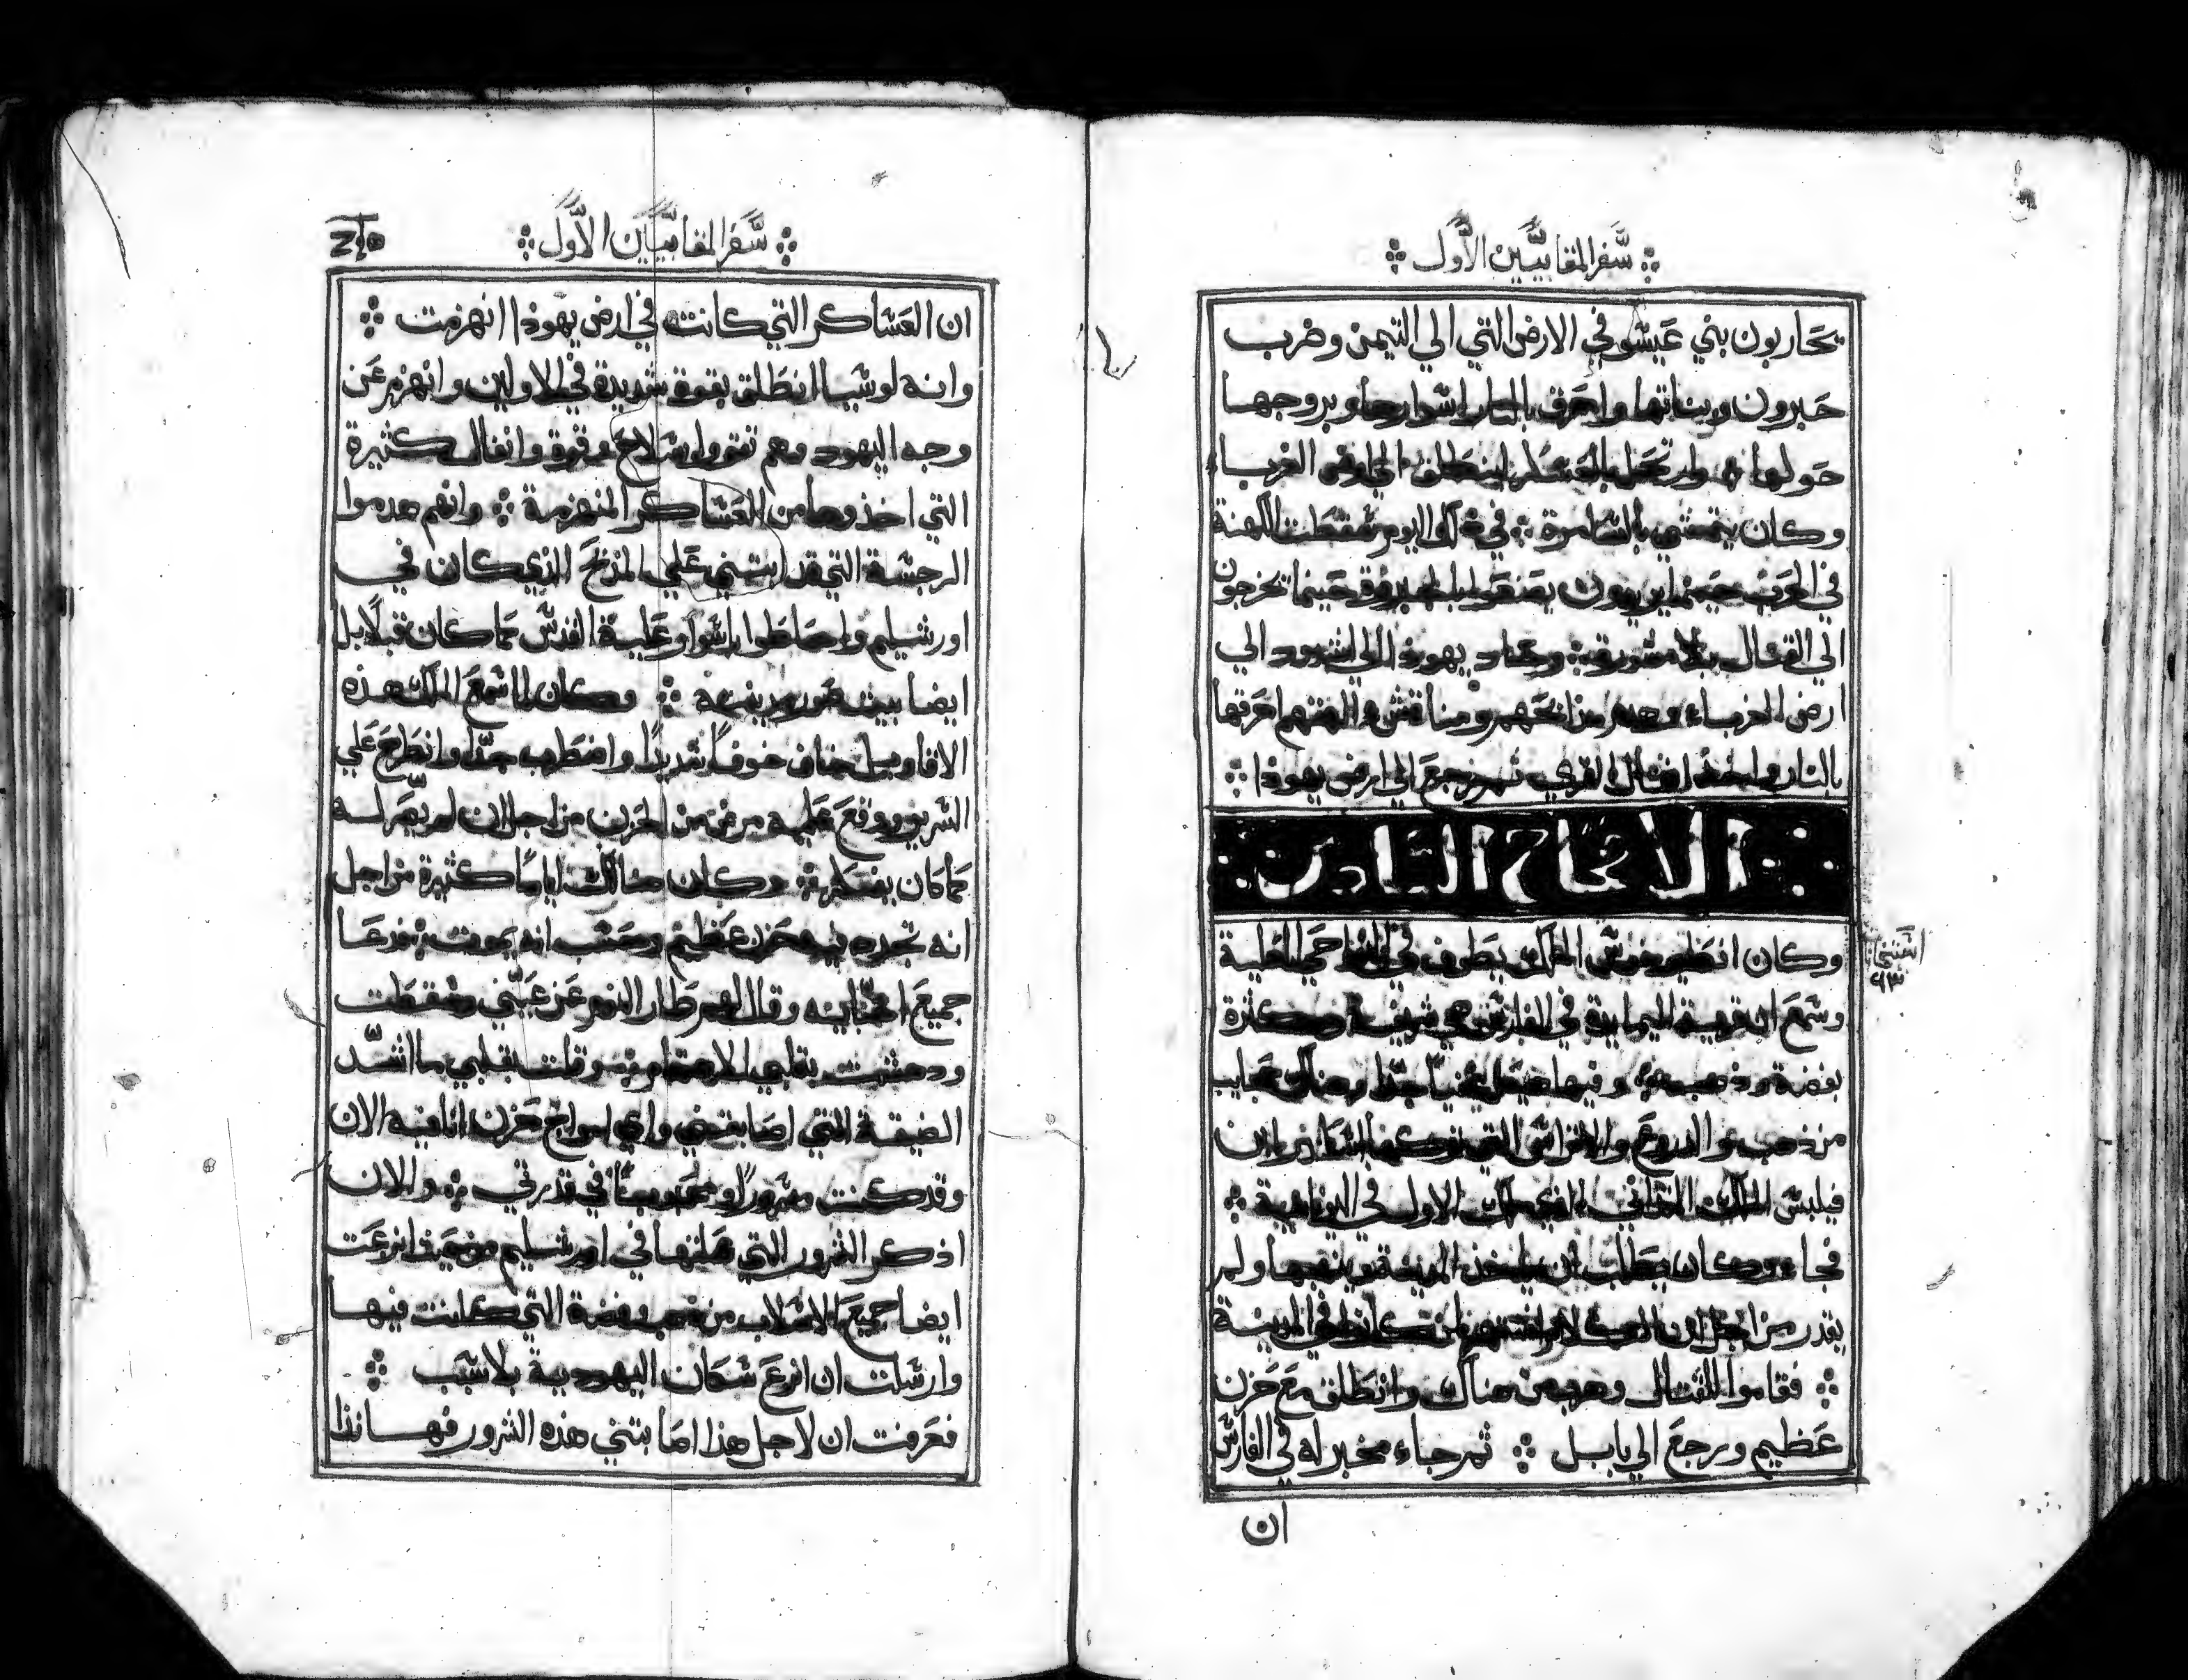 سفر المقابيين الاول
يحاربون بني عيسو في الارض التي الي التيمن وضرب
حبرون وبناتها واحرق بالنار اسوارها وبروجها
حولها وارتحل بالعسكر لينطلق الي ارض الغربا
وكان يتمشي بالسامرة في ذلك اليوم سقطت الكهنة
في الحرب حينما يريدون يصنعوا حينما يخرجون
الي القتال بلا مشورة وحاد يهوذا الي اشدود الي
ارض الغرباء وهدم مذابحهم ومناقش الهتهم احرقها
بالنار واخذ انفال القري ثم رجع الي ارض يهوذا
الاصحاح السادس
وكان انطيخوس الملك يطوف في النواحي العلية
وسمع ان قرية اليمايية في الفارس هي شريفة وكثرة
بفضة وذهب وفيها هيكل غنيا جدا وهناك عجايب
من ذهب والدروع والاتراس التي تركها اسكندر ابن
فيلبس الملك الذي ملك الاول في اليونانية
فجاء وكان يطلب ان ياخذ المدينة وينهبها ولم
يقدر من اجل ان الكلام اشتهر لمن كانوا في المدينة
فقاموا للقتال وهرب من هناك وانطلق مع حزن
عظيم ورجع الي بابل ثم جاء مخبر له في الفارس
ان
سفر المقابيين الاول
ان العساكر التي كانت في ارض يهوذا انهزمت
وانه لوسيا انطلق بقوة شديدة في الاولين وانهزم عن
وجه اليهود وهم تقووا بسلاح وقوة وانفال كثيرة
التي اخذوها من العساكر المنهزمة وانهم هدموا
الرجسة التي قد ابتني علي المذبح الذي كان في
اورشليم واحاطوا باسوار عليه القدس كما كان قبلا بل
ايضا بيت صور مدينته وكان لما سمع الملك هذه
الاقاويل خاف خوفا شديدا واضطرب جدا وانطرح علي
السرير ووقع عليه مرض من الحزن من اجل ان لم يصر له
كما كان يفتكر وكان هنالك اياما كثيرة من اجل
انه تجدد فيه حزن عظيم وحسب انه يموت فدعا
جميع احبايه وقال لهم طار النوم عن عيني وسقطت
ودهشت بقلبي الاهتمام وقلت بقلبي ما اشد
الضيقة التي اصابتني واي امواج حزن انا فيه الان
وقد كنت مسرورا ومحبوبا في قدرتي والان
اذكر الشرور التي عملتها في اورشليم من حيث انزعت
ايضا جميع الاسلاب من ذهب وفضة التي كانت فيها
وارسلت ان انزع سكان اليهودية بلا سبب
فعرفت ان لاجل هذا اصابتني هذه الشرور فها انذا